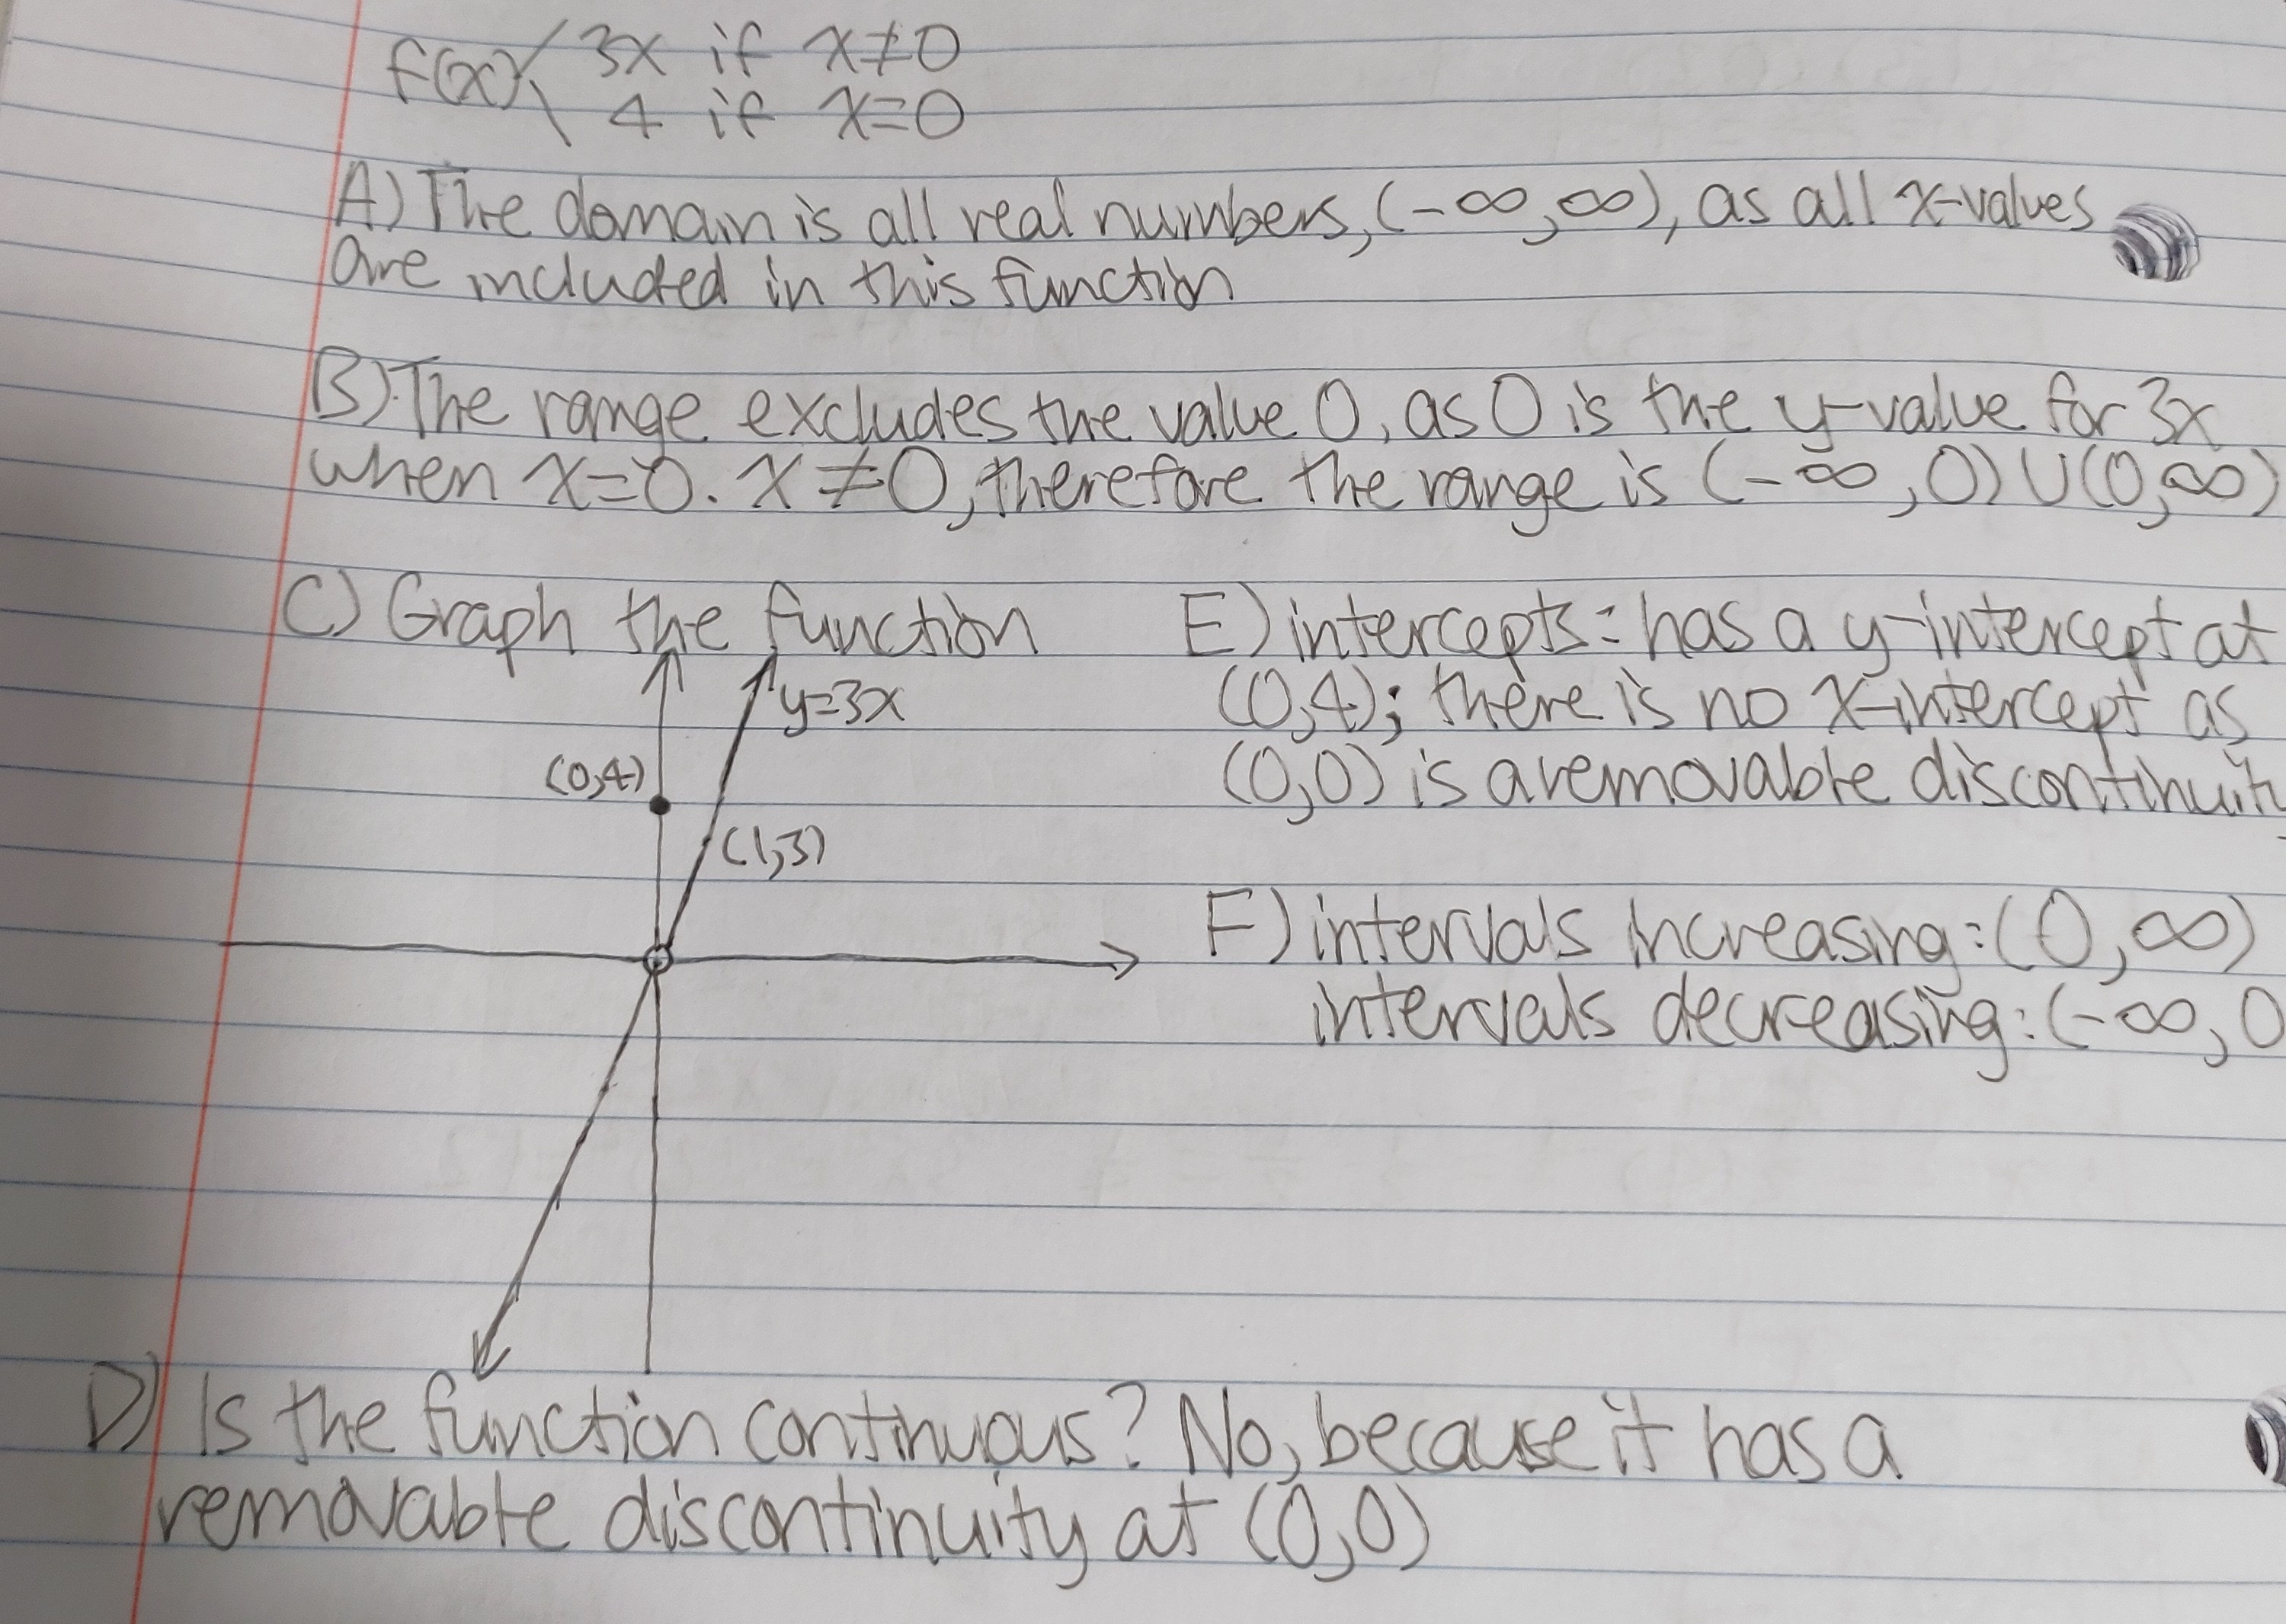 f(x) { 3x if x≠0
4 if x=0
A) The domain is all real numbers, (-∞,∞), as all x-values
are included in this function
B) The range excludes the value 0, as 0 is the y-value for 3x
when x=0. x≠0, therefore the range is (-∞,0)∪(0,∞)
C) Graph the function
y=3x
(0,4)
(1,3)
E) intercepts: has a y-intercept at
(0,4); there is no x-intercept as
(0,0) is a removable discontinuity
F) intervals increasing: (0,∞)
intervals decreasing: (-∞,0
D) Is the function continuous? No, because it has a
removable discontinuity at (0,0)